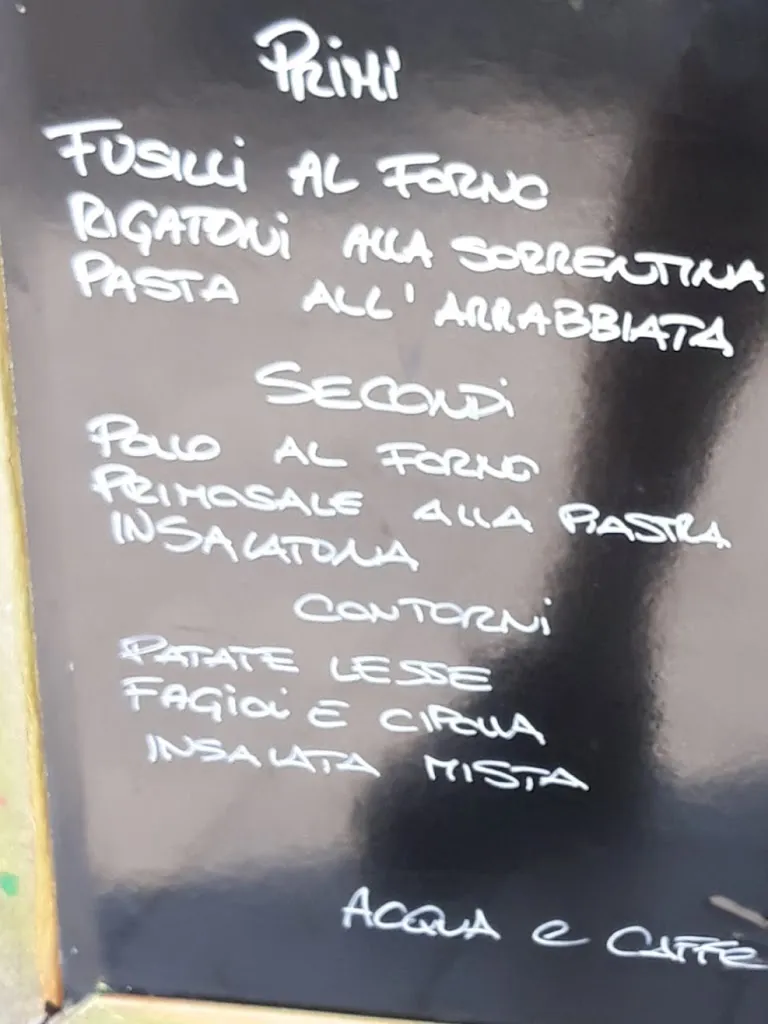 PRIMI
FUSILLI AL FORNO
RIGATONI ALLA SORRENTINA
PASTA ALL'ARRABBIATA
SECONDI
POLLO AL FORNO
PRIMOSALE ALLA PIASTRA
INSALATONA
CONTORNI
PATATE LESSE
FAGIOLI E CIPOLLA
INSALATA MISTA
ACQUA e CAFFE